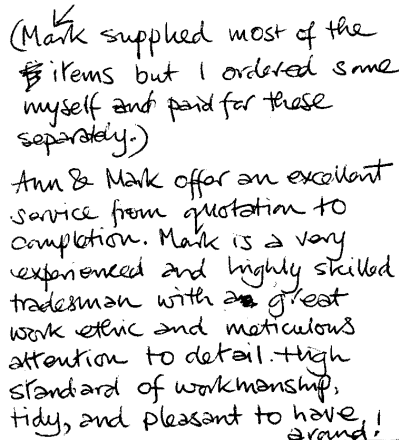 (Mark supplied most of the
items but I ordered some
myself and paid for these
separately.)
Ann & Mark offer an excellent
service from quotation to
completion. Mark is a very
experienced and highly skilled
tradesman with a great
work ethic and meticulous
attention to detail. High
standard of workmanship,
tidy, and pleasant to have
around!